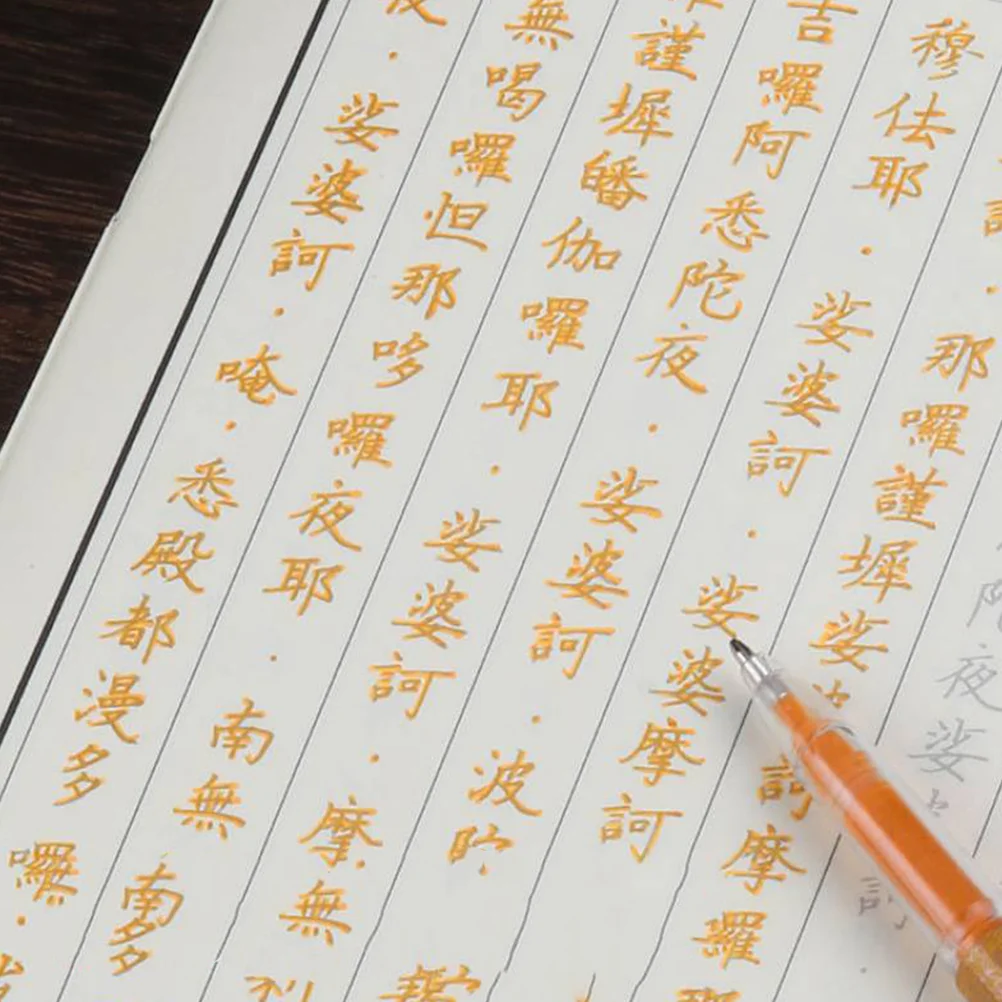 夜娑訶
那囉謹墀娑訶摩羅
穆佉耶·娑婆訶·娑婆摩訶
吉囉阿悉陀夜·娑婆訶·波
謹墀皤伽囉耶·娑婆訶·摩無
無喝囉怛那哆囉夜耶·南無南多
·娑婆訶·唵·悉殿都漫多囉·